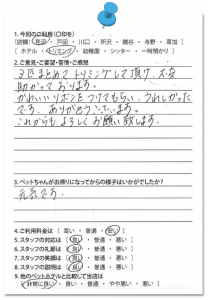 1. 今回のご利用(○印を)
[店舗: 登沼 ・ 戸田 ・ 川口 ・ 所沢 ・ 越谷 ・ 与野 ・ 草加 ]
[ ホテル ・ トリミング ・ 幼稚園 ・ シッター ・ 一時預かり ]
2. ご意見・ご要望・苦情・ご感想
3匹まとめてトリミングして頂け、大変
助かっております。
かわいいリボンをつけてもらい、うれしかった
です。ありがとうございます。
これからもよろしくお願い致します。
3. ペットちゃんがお帰りになってからの様子はいかがでしたか?
元気です。
4. ご利用料金は [ 高い ・ 普通 ・ 安い ]
5. スタッフの対応は [ 良い ・ 普通 ・ 悪い ]
6. スタッフの知識は [ 良い ・ 普通 ・ 悪い ]
7. スタッフの技術は [ 良い ・ 普通 ・ 悪い ]
8. スタッフの説明は [ 良い ・ 普通 ・ 悪い ]
9. 他のペットホテルと比較して当店は
[ 非常に良い ・ 良い ・ 普通 ・ やや悪い ・ 悪い ]